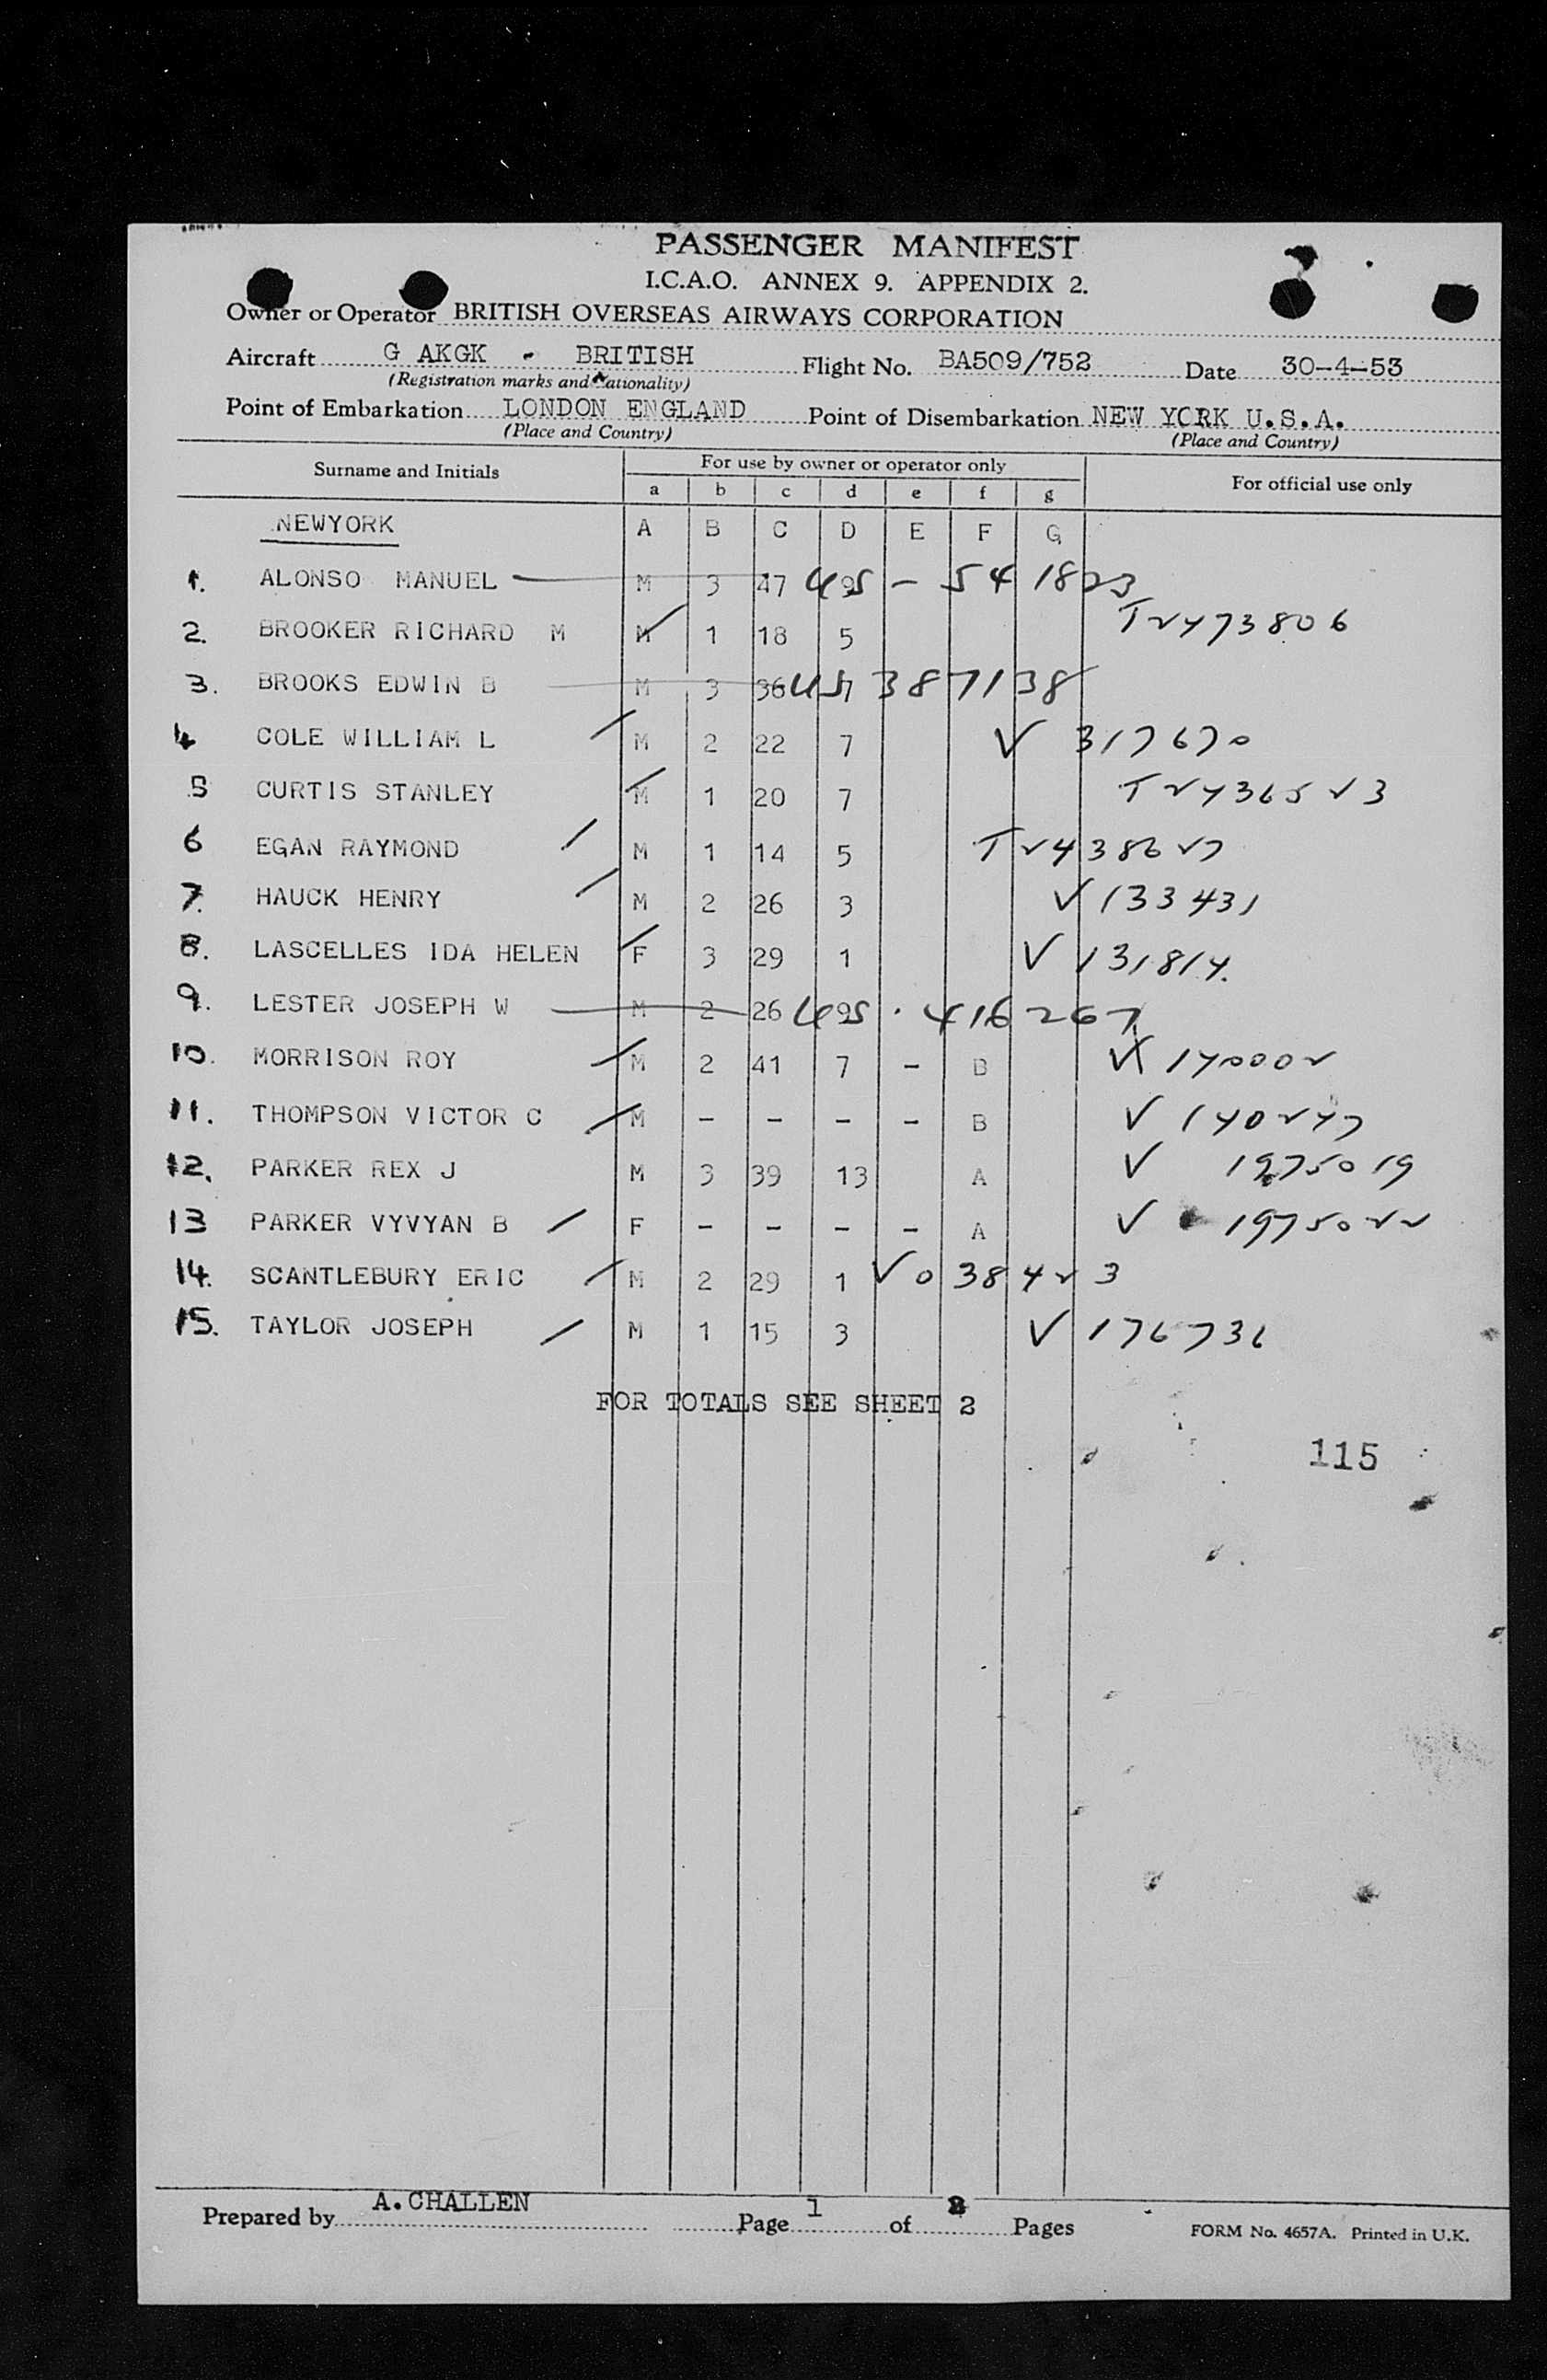 PASSENGER MANIFEST
I.C.A.O. ANNEX 9. APPENDIX 2.
Owner or Operator BRITISH OVERSEAS AIRWAYS CORPORATION
Aircraft G AKGK - BRITISH Flight No. BA509/752 Date 30-4-53
(Registration marks and nationality)
Point of Embarkation LONDON ENGLAND Point of Disembarkation NEW YORK U.S.A.
(Place and Country) (Place and Country)
Surname and Initials For use by owner or operator only For official use only
a b c d e f g
NEWYORK A B C D E F G
1. ALONSO MANUEL M 3 47 - 54 1823
2. BROOKER RICHARD M M 1 18 5 T2473806
3. BROOKS EDWIN B M 3 36 387138
4 COLE WILLIAM L M 2 22 7 V 317670
5 CURTIS STANLEY M 1 20 7 T2436523
6 EGAN RAYMOND M 1 14 5 T2438627
7. HAUCK HENRY M 2 26 3 V 133431
8. LASCELLES IDA HELEN F 3 29 1 V 131814.
9. LESTER JOSEPH W M 2 26 416267
10. MORRISON ROY M 2 41 7 - B V 140002
11. THOMPSON VICTOR C M - - - - B V 140247
12. PARKER REX J M 3 39 13 A V 1975019
13 PARKER VYVYAN B F - - - - A V 1975022
14. SCANTLEBURY ERIC M 2 29 1 V038423
15. TAYLOR JOSEPH M 1 15 3 V 176736
FOR TOTALS SEE SHEET 2
115
Prepared by A.CHALLEN Page 1 of 2 Pages FORM No. 4657A. Printed in U.K.